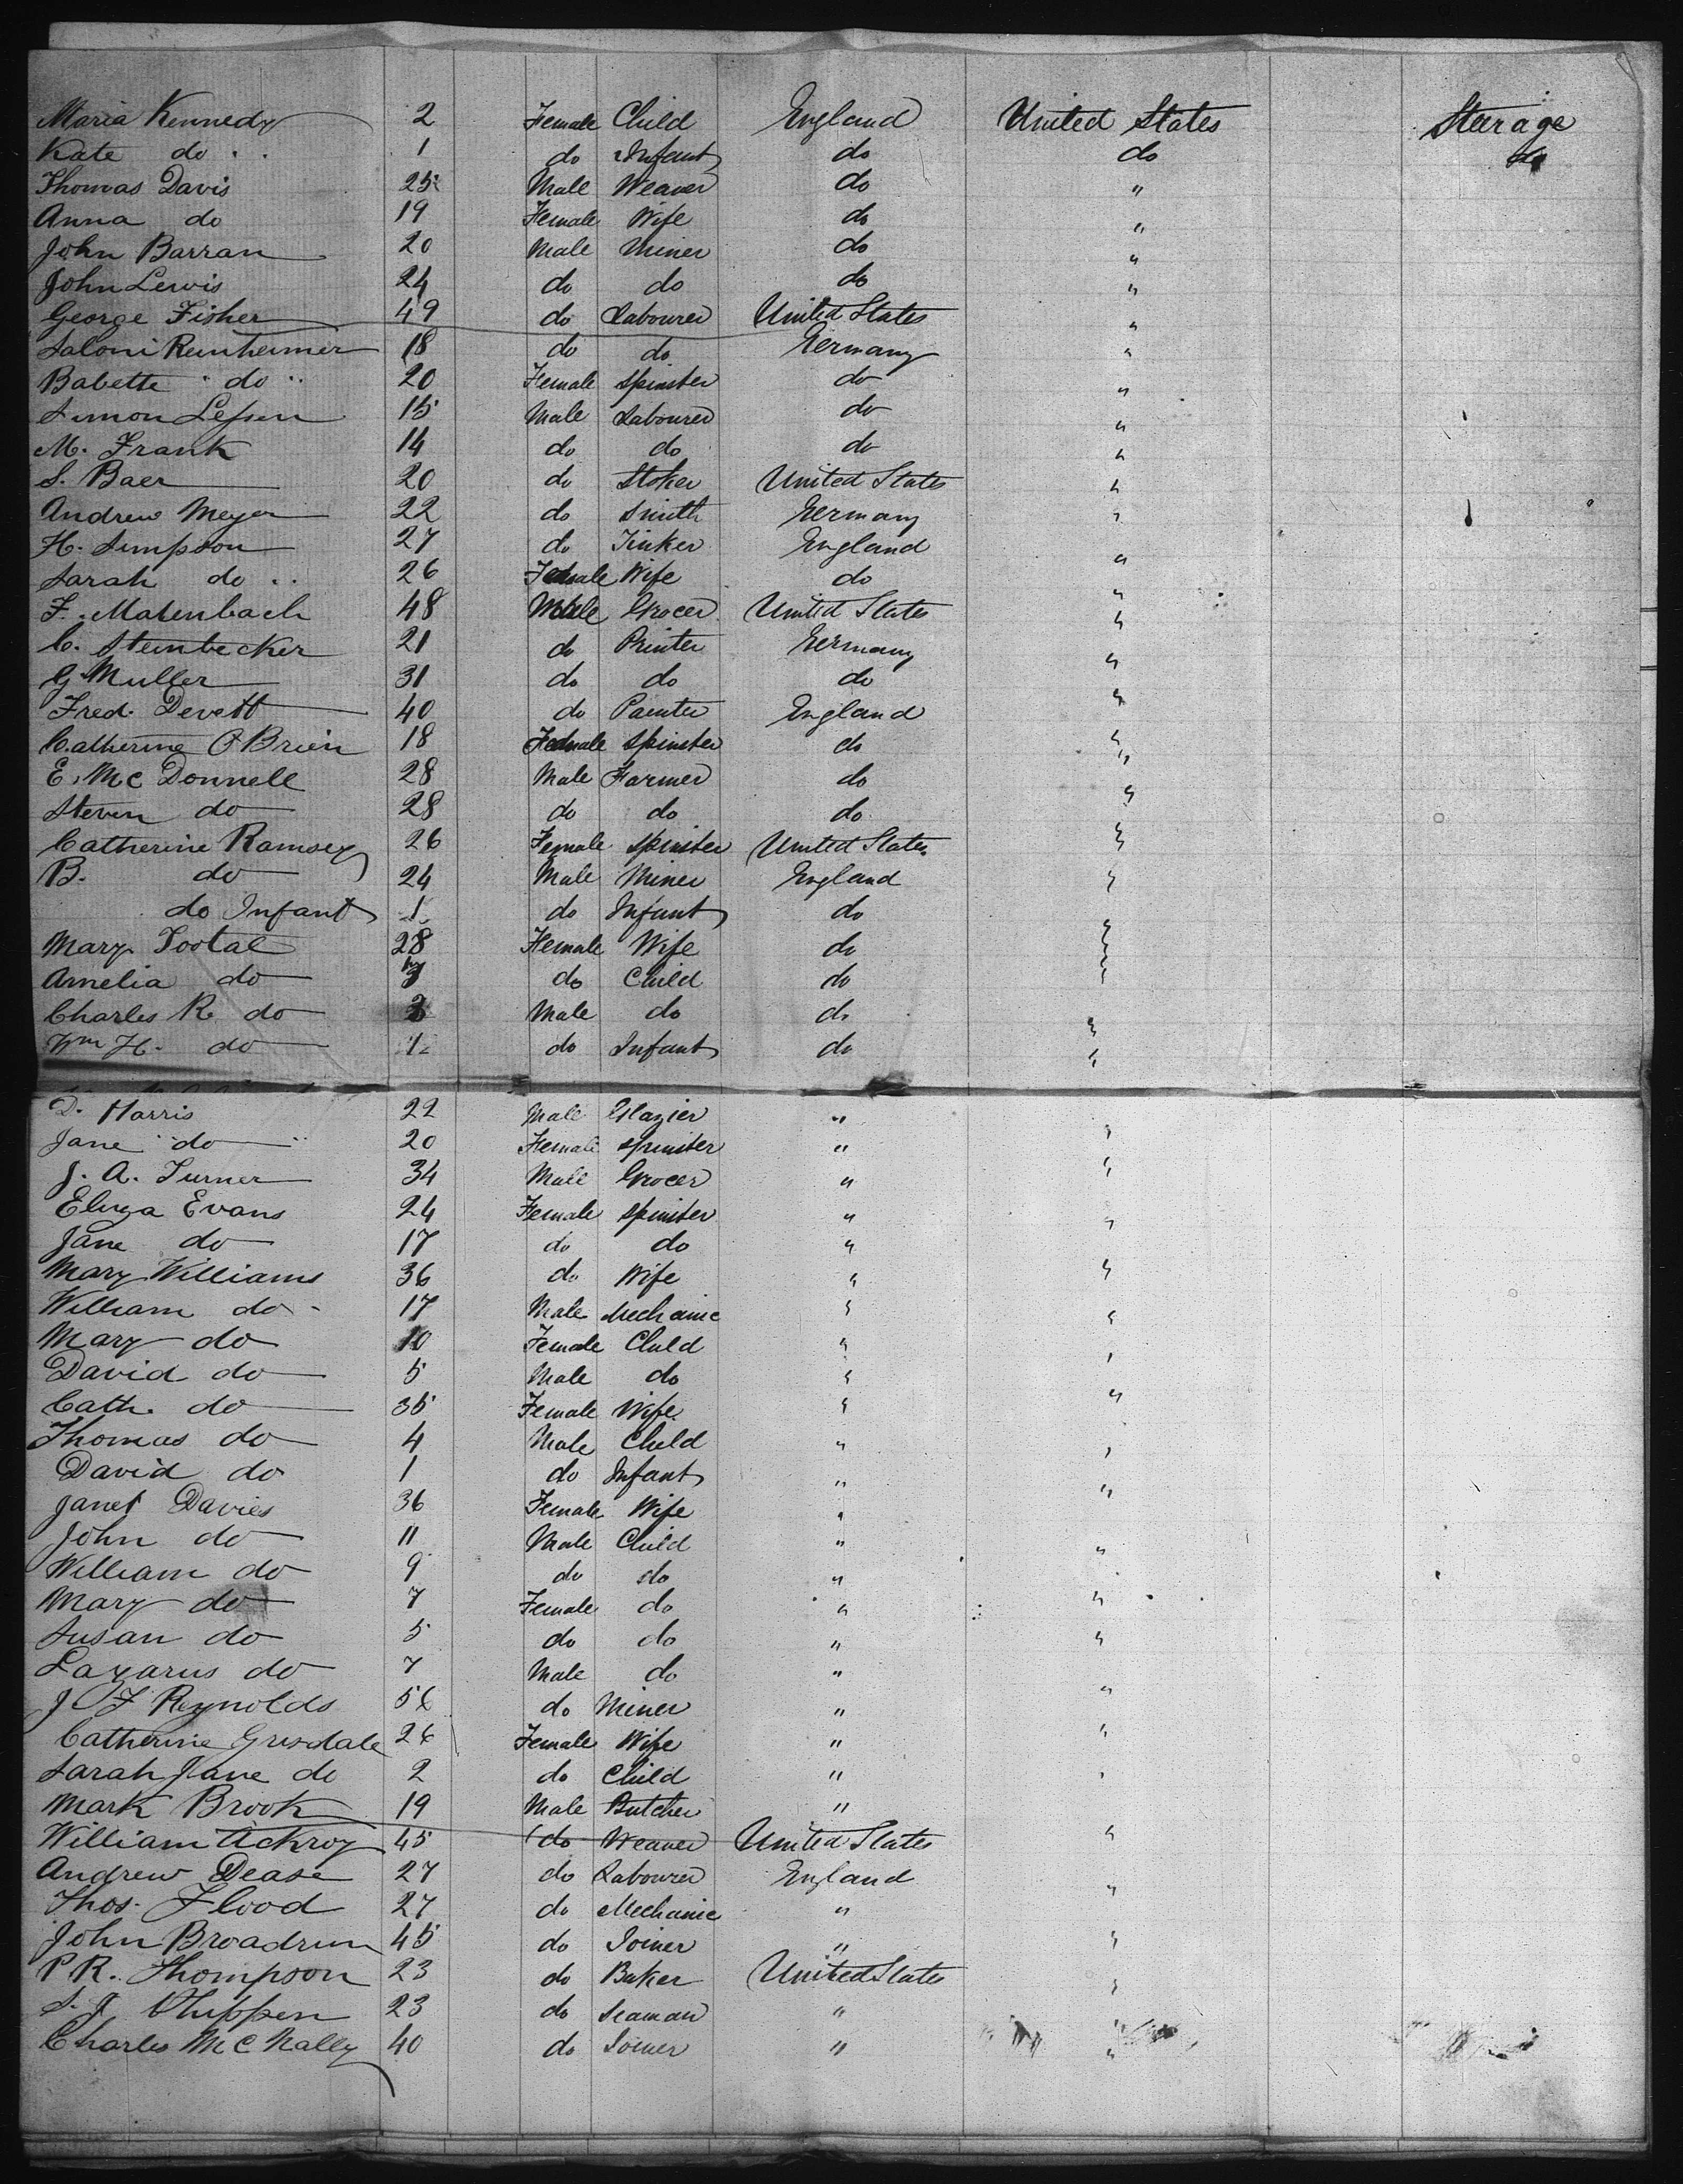 Maria Kennedy 2 Female Child England United States Steerage
Kate do 1 do Infant do do do
Thomas Davis 25 Male Weaver do "
Anna do 19 Female Wife do "
John Barran 20 Male Miner do "
John Lewis 24 do do do "
George Fisher 49 do Labourer United States "
Saloni Reinheimer 18 do do Germany "
Babette do 20 Female Spinster do "
Simon 15 Male Labourer do "
M. Frank 14 do do do "
S. Baer 20 do Stoker United States "
Andrew Meyer 22 do Smith Germany "
H. Simpson 27 do Tinker England "
Sarah do 26 Female Wife do "
F. Matenbach 48 Male Grocer United States "
C. Steinbecker 21 do Printer Germany "
G Muller 31 do do do "
Fred. Devett 40 do Painter England "
Catherine O'Brien 18 Female Spinster do "
E. McDonnell 28 Male Farmer do "
Steven do 28 do do do "
Catherine Ramsey 26 Female Spinster United States "
B. do 24 Male Miner England "
do Infant 1 do Infant do "
Mary Tootal 28 Female Wife do "
Amelia do 7 do Child do "
Charles R do 3 Male do do "
Wm H. do 1 do Infant do "
D. Harris 22 Male Glazier " "
Jane do 20 Female Spinster " "
J. A. Turner 34 Male Grocer "
Eliza Evans 24 Female Spinster " "
Jane do 17 do do "
Mary Williams 36 do Wife " "
William do 17 Male Mechanic " "
Mary do 10 Female Child " "
David do 5 Male do " "
Cath. do 35 Female Wife "
Thomas do 4 Male Child " "
David do 1 do Infant " "
Janet Davies 36 Female Wife "
John do 11 Male Child " "
William do 9 do do "
Mary do 7 Female do " "
Susan do 5 do do " "
Lazarus do 7 Male do " "
J F Reynolds do Miner "
Catherine Grisdale 26 Female Wife " "
Sarah Jane do 2 do Child " "
Mark Brook 19 Male Butcher "
William Ackroy 45 do Weaver United States "
Andrew Dease 27 do Labourer England "
Thos. Flood 27 do Mechanic "
John Broadrun 45 do Joiner " "
P R. Thompson 23 do Baker United States "
S. J. 23 do Seaman " "
Charles McNally 40 do Joiner " "